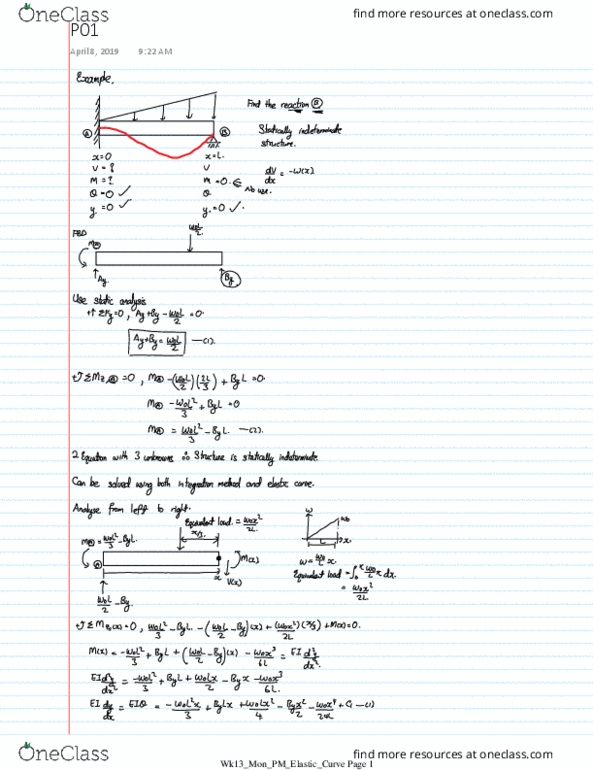 OneClass
find more resources at oneclass.com
P01
April 8, 2019 9:22 AM
Example.
Find the reaction B
Statically indeterminate
structure.
A
B
x=0
x=L.
V=?
V
dV/dx = -W(x)
M=?
M=0. ← No use.
θ=0 ✓
θ
y=0 ✓
y=0 ✓.
FBD
W₀L/2
M_A
Ay
By
Use static analysis
+↑ ΣFy=0, Ay+By - W₀L/2 =0.
Ay+By = W₀L/2 —(1).
+↺ ΣM_z,A =0, M_A -(W₀L/2)(2L/3) + ByL =0.
M_A - W₀L²/3 + ByL =0
M_A = W₀L²/3 - ByL. —(2).
2 Equation with 3 unknowns ∴ Structure is statically indeterminate
Can be solved using both integration method and elastic curve.
Analyse from left to right.
Equivalent load = W₀x²/2L
x/3
W
W₀
L
x
M_A = W₀L²/3 - ByL
A
M(x)
V(x)
x
W = W₀/L x
Equivalent load = ∫₀ˣ W₀/L x dx.
= W₀x²/2L
W₀L/2 - By
+↺ ΣM_z(x)=0, W₀L²/3 - ByL - (W₀L/2 - By)(x) + (W₀x²/2L)(x/3) + M(x)=0.
M(x) = -W₀L²/3 + ByL + (W₀L/2 - By)(x) - W₀x³/6L = EI d²y/dx²
EI d²y/dx² = -W₀L²/3 + ByL + W₀Lx/2 - Byx - W₀x³/6L.
EI dy/dx = EIθ = -W₀L²x/3 + ByLx + W₀Lx²/4 - Byx²/2 - W₀x⁴/24L + C₁ —(1)
OneClass
find more resources at oneclass.com
Wk13_Mon_PM_Elastic_Curve Page 1